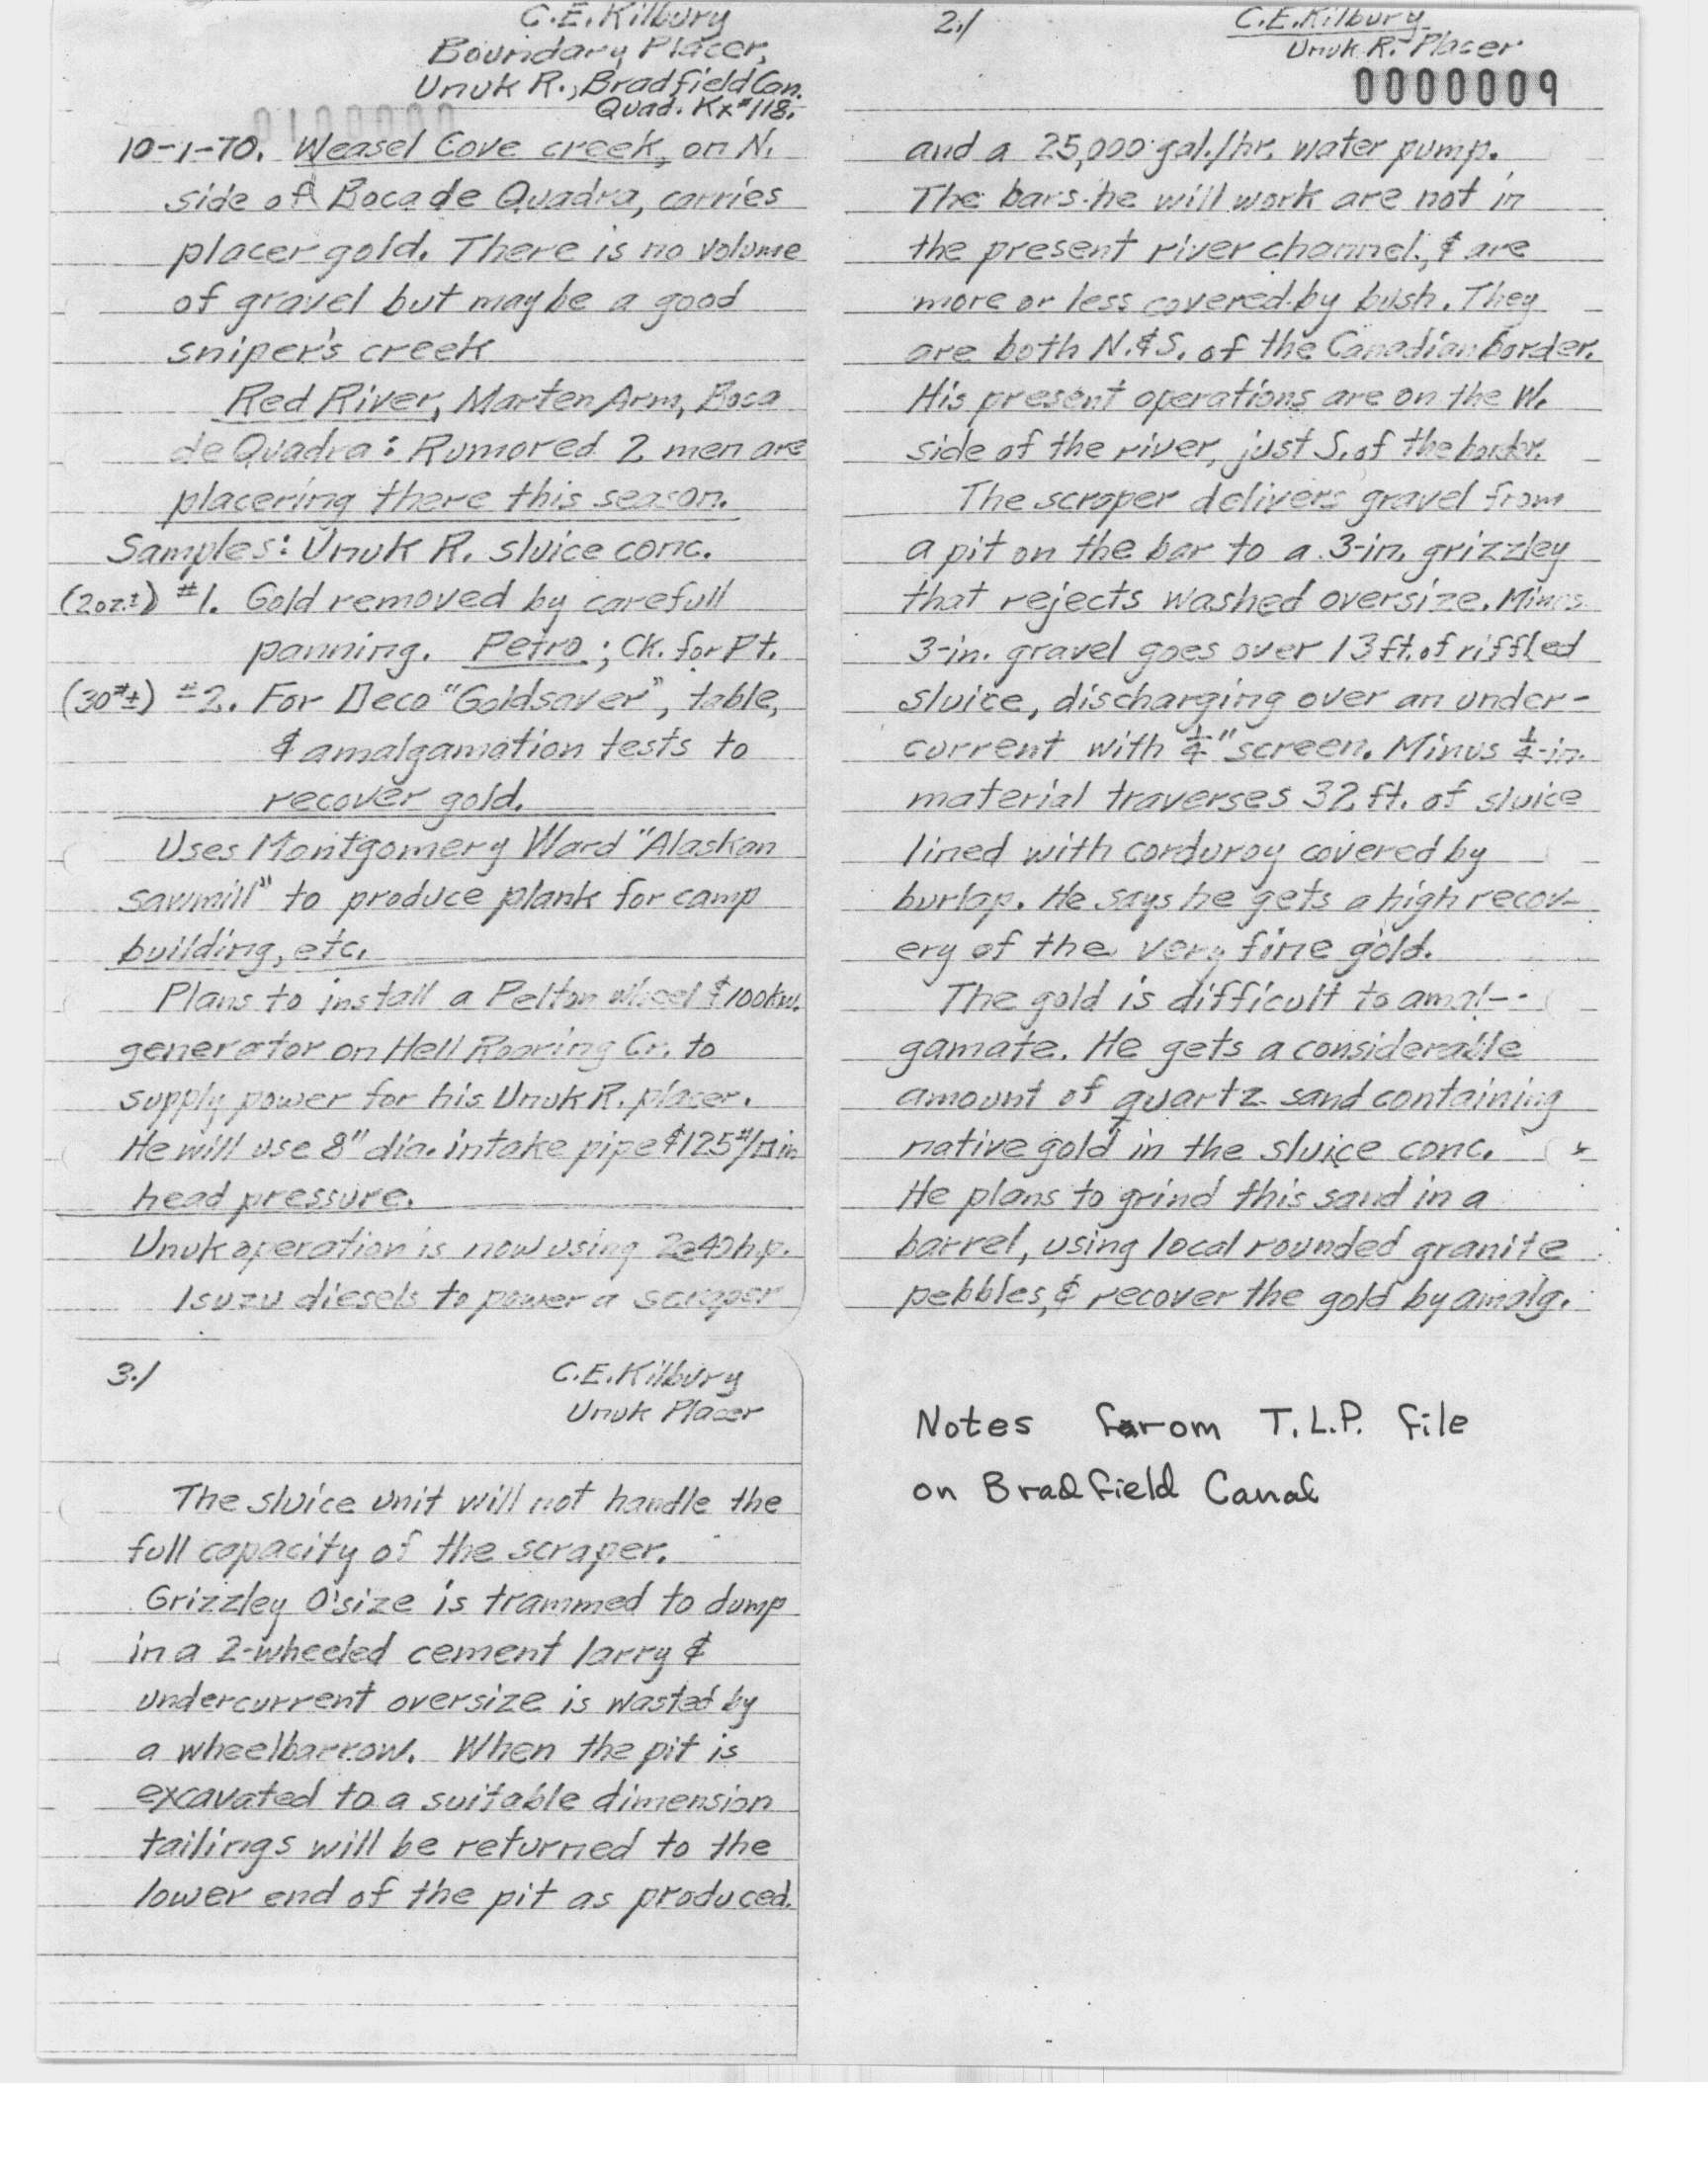 C.E. Kilbury
Boundary Placer,
Unuk R., Bradfield Can.
Quad. Kx #118.
10-1-70. Weasel Cove creek, on N.
side of Boca de Quadra, carries
placer gold. There is no volume
of gravel but may be a good
sniper's creek
Red River, Marten Arm, Boca
de Quadra: Rumored 2 men are
placering there this season.
Samples: Unuk R. sluice conc.
(2oz.±) #1. Gold removed by carefull
panning. Petro.; Ck. for Pt.
(30#±) #2. For Deco "Goldsaver", table,
& amalgamation tests to
recover gold.
Uses Montgomery Ward "Alaskan
sawmill" to produce plank for camp
building, etc.
Plans to install a Pelton wheel & 100kw.
generator on Hell Roaring Cr. to
supply power for his Unuk R. placer.
He will use 8" dia. intake pipe & 125#/□in
head pressure.
Unuk operation is now using 2-40 h.p.
Isuzu diesels to power a scraper
2./
C.E. Kilbury
Unuk R. Placer
0000009
and a 25,000 gal./hr. water pump.
The bars he will work are not in
the present river channel, & are
more or less covered by bush. They
are both N. & S. of the Canadian border.
His present operations are on the W.
side of the river, just S. of the border.
The scraper delivers gravel from
a pit on the bar to a 3-in. grizzley
that rejects washed oversize. Minus
3-in. gravel goes over 13 ft. of riffled
sluice, discharging over an under-
current with 1/4" screen. Minus 1/4-in.
material traverses 32 ft. of sluice
lined with corduroy covered by
burlap. He says he gets a high recov-
ery of the very fine gold.
The gold is difficult to amal-
gamate. He gets a considerable
amount of quartz sand containing
native gold in the sluice conc.
He plans to grind this sand in a
barrel, using local rounded granite
pebbles, & recover the gold by amalg.
3./
C.E. Kilbury
Unuk Placer
The sluice unit will not handle the
full capacity of the scraper.
Grizzley O'size is trammed to dump
in a 2-wheeled cement larry &
undercurrent oversize is wasted by
a wheelbarrow. When the pit is
excavated to a suitable dimension
tailings will be returned to the
lower end of the pit as produced.
Notes from T.L.P. file
on Bradfield Canal